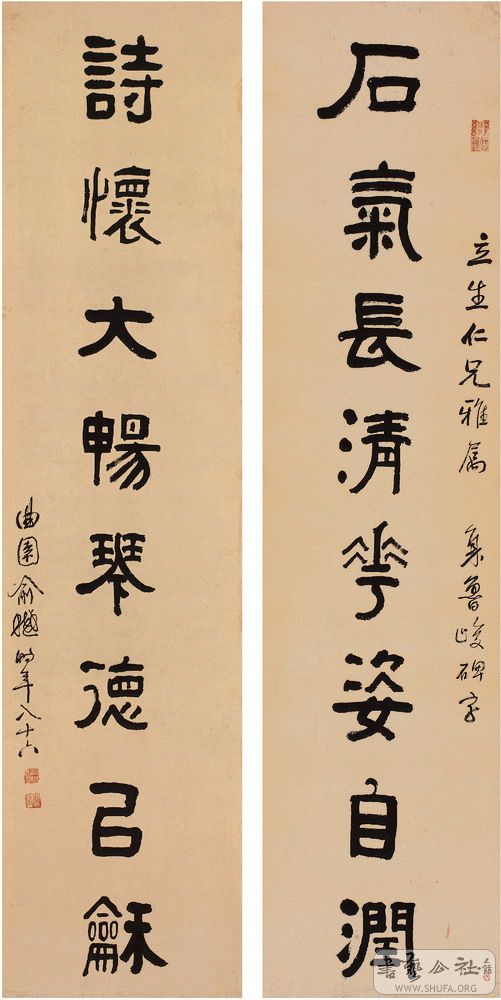 立生仁兄雅属 集魯峻碑字
石氣長清華姿自潤
詩懷大暢琴德已龢
曲園俞樾時年八十六
書藝公社
WWW.SHUFA.ORG